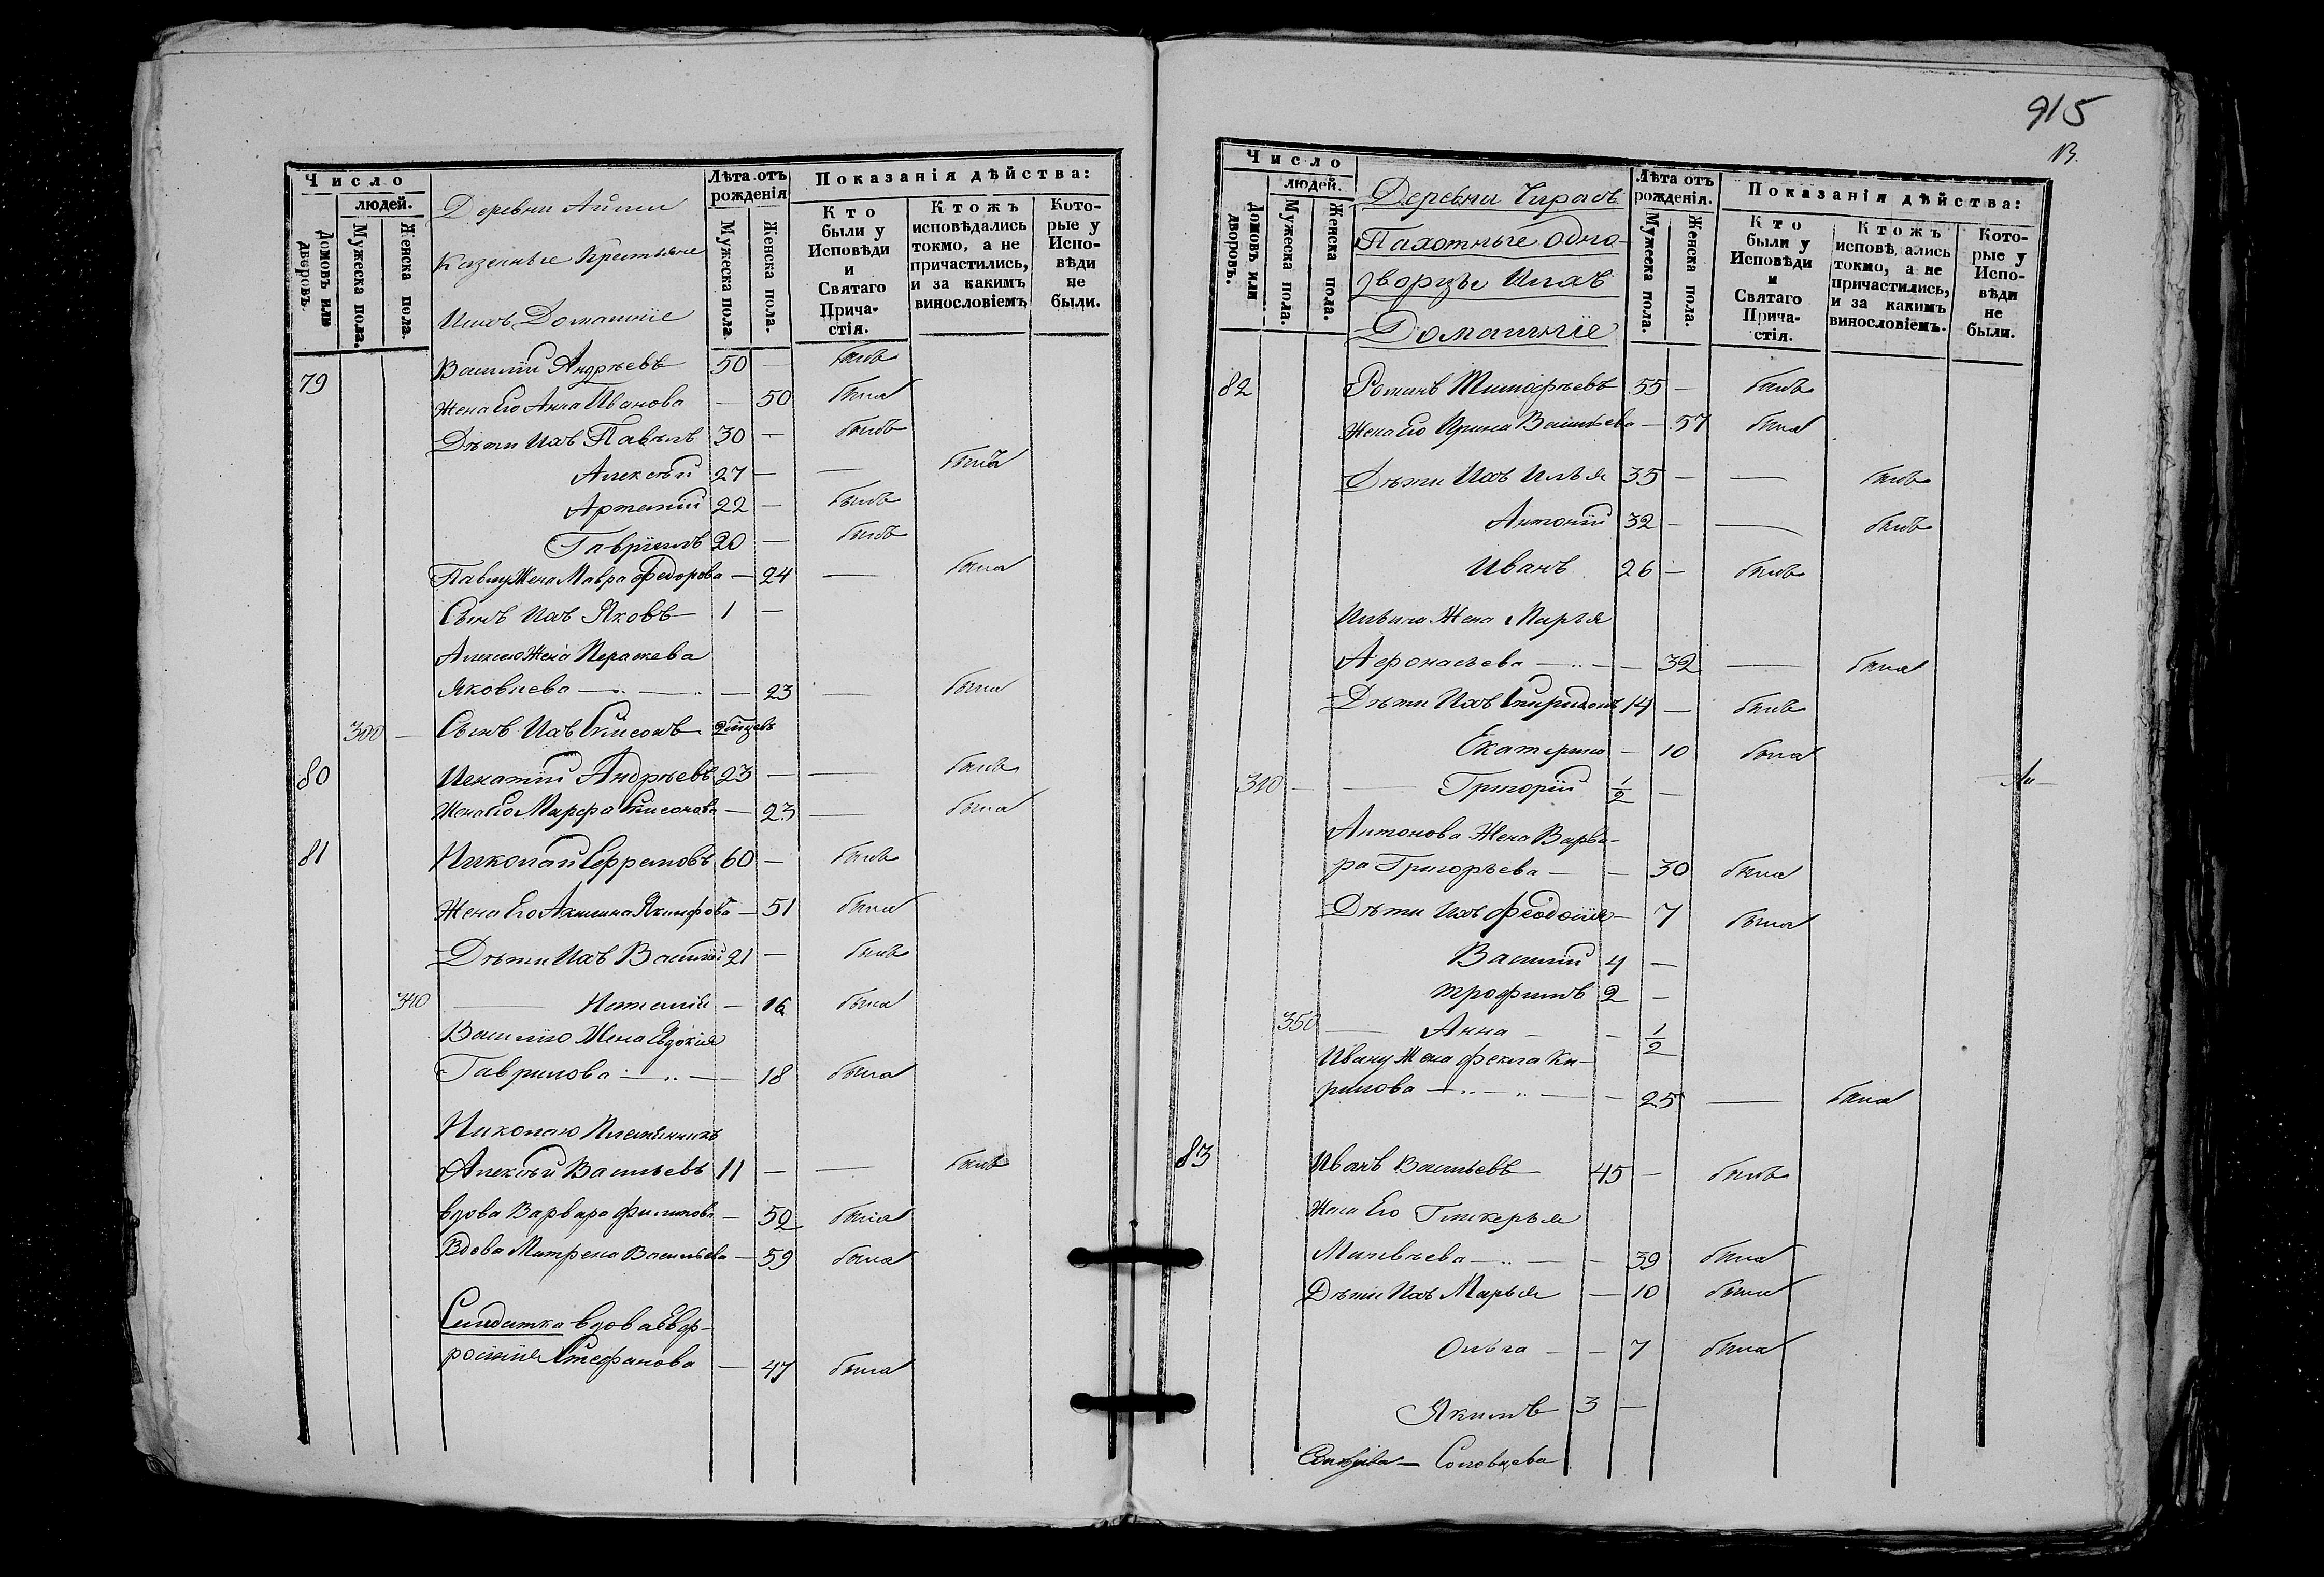 Число
людей.
Домовъ или дворовъ.
Мужеска пола.
Женска пола.
Деревни Айши
Казенные Крестьяне
Ихъ Домашніе
Лѣта отъ рожденія
Мужеска пола.
Женска пола.
Показанія дѣйства:
Кто были у Исповѣди и Святаго Прича-стія.
Ктожъ исповѣдались токмо, а не причастились, и за какимъ винословіемъ
Кото-рые у Испо-вѣди не были.
79 Василій Андрѣевъ 50 — былъ
Жена Его Анна Иванова — 50 была
Дѣти Ихъ Павелъ 30 — былъ
Алексѣй 27 — — былъ
Артемій 22 — былъ
Гавріилъ 20 — былъ
Павлу Жена Мавра Федорова — 24 — была
Сынъ Ихъ Яковъ — 1 —
Алексею Жена
Яковлева — 23 — была
300 — Сынъ Ихъ Симеонъ
80 Игнатій Андрѣевъ 23 — — былъ
Жена Его Марфа Симеонова — 23 — была
81 Николай Ефремовъ 60 — былъ
Жена Его Акилина — 51 была
Дѣти Ихъ Василій 21 — былъ
340 — Наталія — 16 была
Василію Жена Евдокія
Гаврилова — 18 была
Николаю Племянникъ
Алексѣй Васильевъ 11 — — былъ
Вдова Варвара Филипова — 52 была
Вдова Матрена Васильева — 59 была
Солдатка вдова Евф-
росинія Стефанова — 47 была
915
Число
людей.
Домовъ или дворовъ.
Мужеска пола.
Женска пола.
Деревни
Пахотные Одно-
дворцы Ихъ
Домашніе
Лѣта отъ рожденія.
Мужеска пола.
Женска пола.
Показанія дѣйства:
Кто были у Исповѣди и Святаго Прича-стія.
Ктожъ исповѣ ались токмо, а не причастились, и за какимъ винословіемъ.
Кото-рые у Испо-вѣди не были.
82 Романъ Тимофѣевъ 55 — былъ
Жена Его Ирина Васильева — 57 была
Дѣти Ихъ Илья 35 — — былъ
Антоній 32 — — былъ
Иванъ 26 — былъ
Ильина Жена Марья
Афонасьева — 32 — была
Дѣти Ихъ Спиридонъ 14 — былъ
Екатерина — 10 была
310 — — Григорій 1/2 —
Антонова Жена Варва-
ра Григорьева — — 30 была
Дѣти Ихъ Феодосія — 7 была
Василій 4 —
Трофимъ 2 —
350 — Анна — — 1/2
Ивану Жена Фекла Ки-
рилова — 25 — была
83 Иванъ Васильевъ 45 — былъ
Жена Его Гликерья
Матвѣева — 39 была
Дѣти Ихъ Марья — 10 была
Ольга — — 7 была
Якимъ 3 —